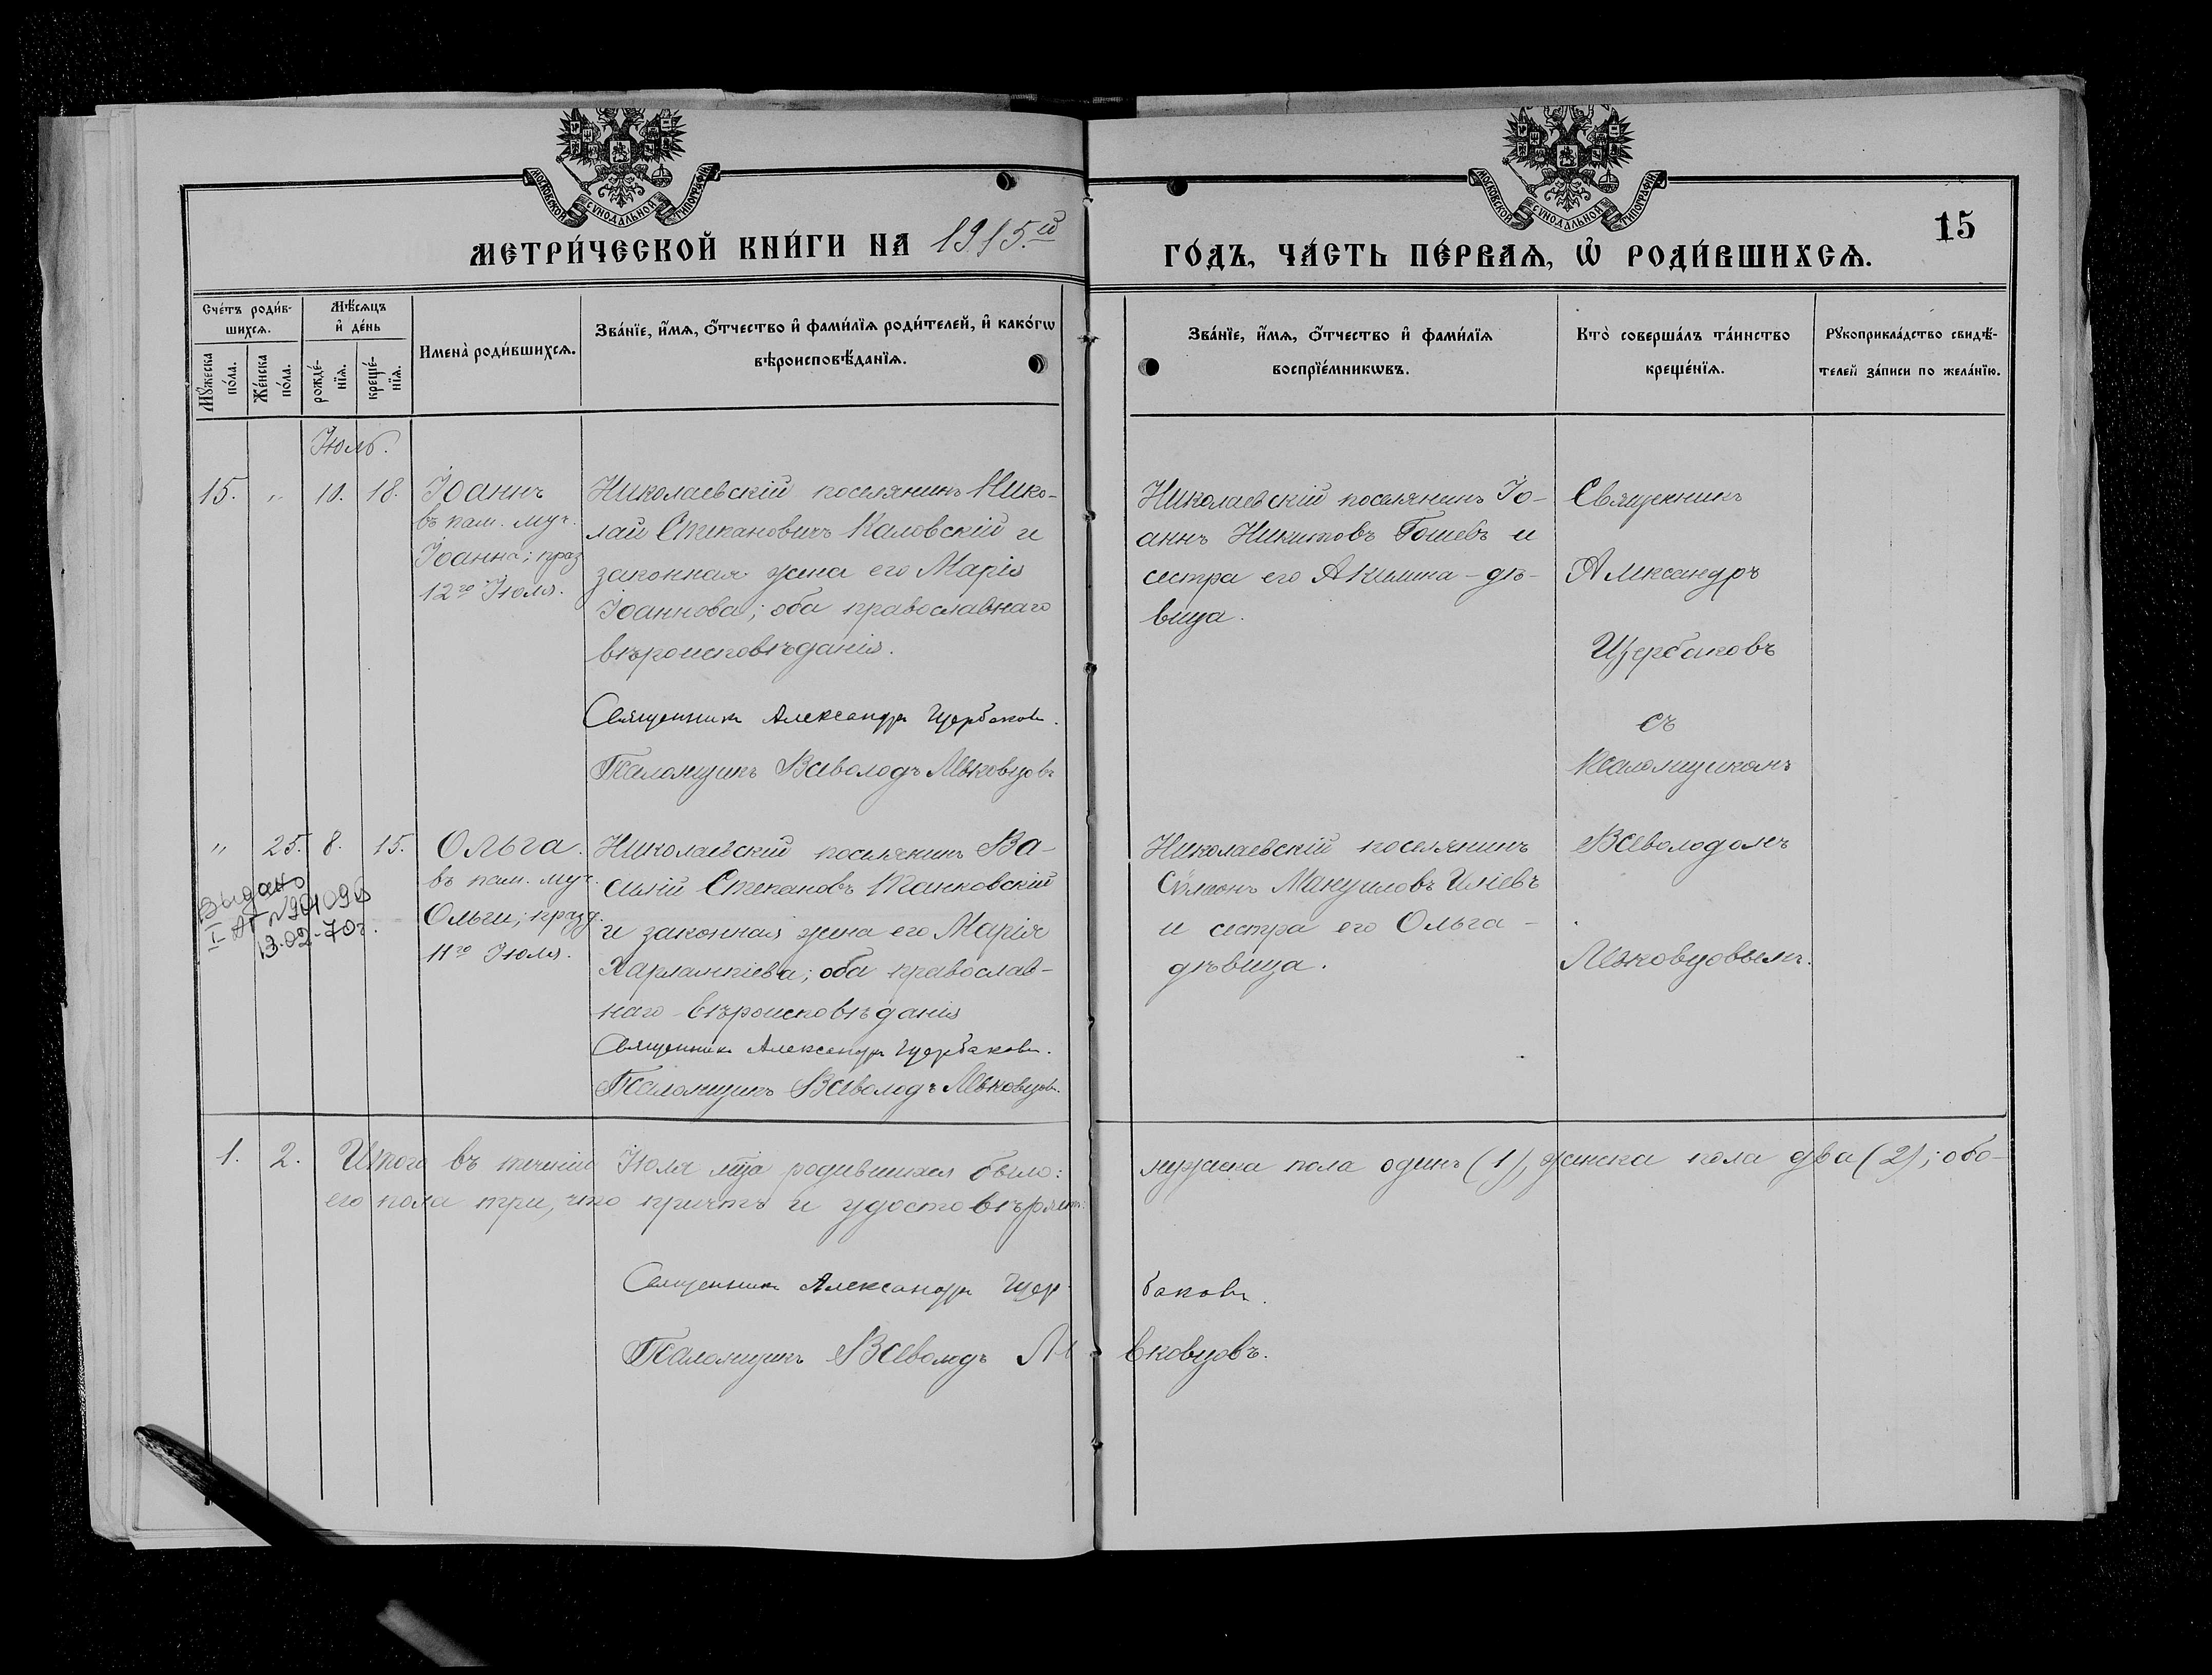 МОСКОВСКОЙ СѴНОДАЛЬНОЙ ТИПОГРАФІИ
МОСКОВСКОЙ СѴНОДАЛЬНОЙ ТИПОГРАФІИ
15
МЕТРИ́ЧЕСКОЙ КНИ́ГИ НА 1915.й
ГО́ДЪ, ЧА́СТЬ ПЕ́РВАѦ, Ѡ РОДИ́ВШИХСѦ.
Сче́тъ роди́в-
шихсѧ.
Мꙋ́жеска
по́ла.
Же́нска
по́ла.
Мѣ́сѧцъ
и҆ де́нь
рожде́-
нїѧ.
креще́-
нїѧ.
Имена̀ роди́вшихсѧ.
Зва́нїе, и҆́мѧ, ѻ҆́тчество и҆ фами́лїѧ роди́телей, и҆ како́гѡ
вѣроисповѣ́данїѧ.
Зва́нїе, и҆́мѧ, ѻ҆́тчество и҆ фами́лїѧ
воспрїе́мникѡвъ.
Кто̀ соверша́лъ та́инство
креще́нїѧ.
Рꙋкоприкла́дство свидѣ́-
телей за́писи по жела́нїю.
Іюль.
15. " 10. 18.
Іоаннъ
въ пам. муч.
Іоанна; праз
12го Іюля.
Николаевскій поселянинъ Нико-
лай Степановичъ Каловскій и
законная жена его Марія
Іоаннова; оба православнаго
вѣроисповѣданія.
Священникъ Александръ Щербаковъ.
Псаломщикъ Всеволодъ Левковцовъ
Николаевскій поселянинъ Іо-
аннъ Никитовъ Гошевъ и
сестра его Акилина - дѣ-
вица.
Священникъ
Александръ
Щербаковъ
съ
псаломщикомъ
Всеволодомъ
Левковцовымъ.
" 25. 8. 15.
Выдано
13-02-70г.
Ольга.
въ пам. муч.
Ольги; празд.
11го Іюля.
Николаевскій поселянинъ Ва-
силій Степановъ Танковскій
и законная жена его Марія
Харлампіева; оба православ-
наго вѣроисповѣданія
Священникъ Александръ Щербаковъ.
Псаломщикъ Всеволодъ Левковцовъ.
Николаевскій поселянинъ
Сѵмеонъ Мануиловъ Иліевъ
и сестра его Ольга -
дѣвица.
1. 2. Итого въ теченіи Іюля мца родившихся было: мужеска пола одинъ (1), женска пола два (2); обо-
его пола три, что причтъ и удостовѣряетъ:
Священникъ Александръ Щербаковъ.
Псаломщикъ Всеволодъ Левковцовъ.